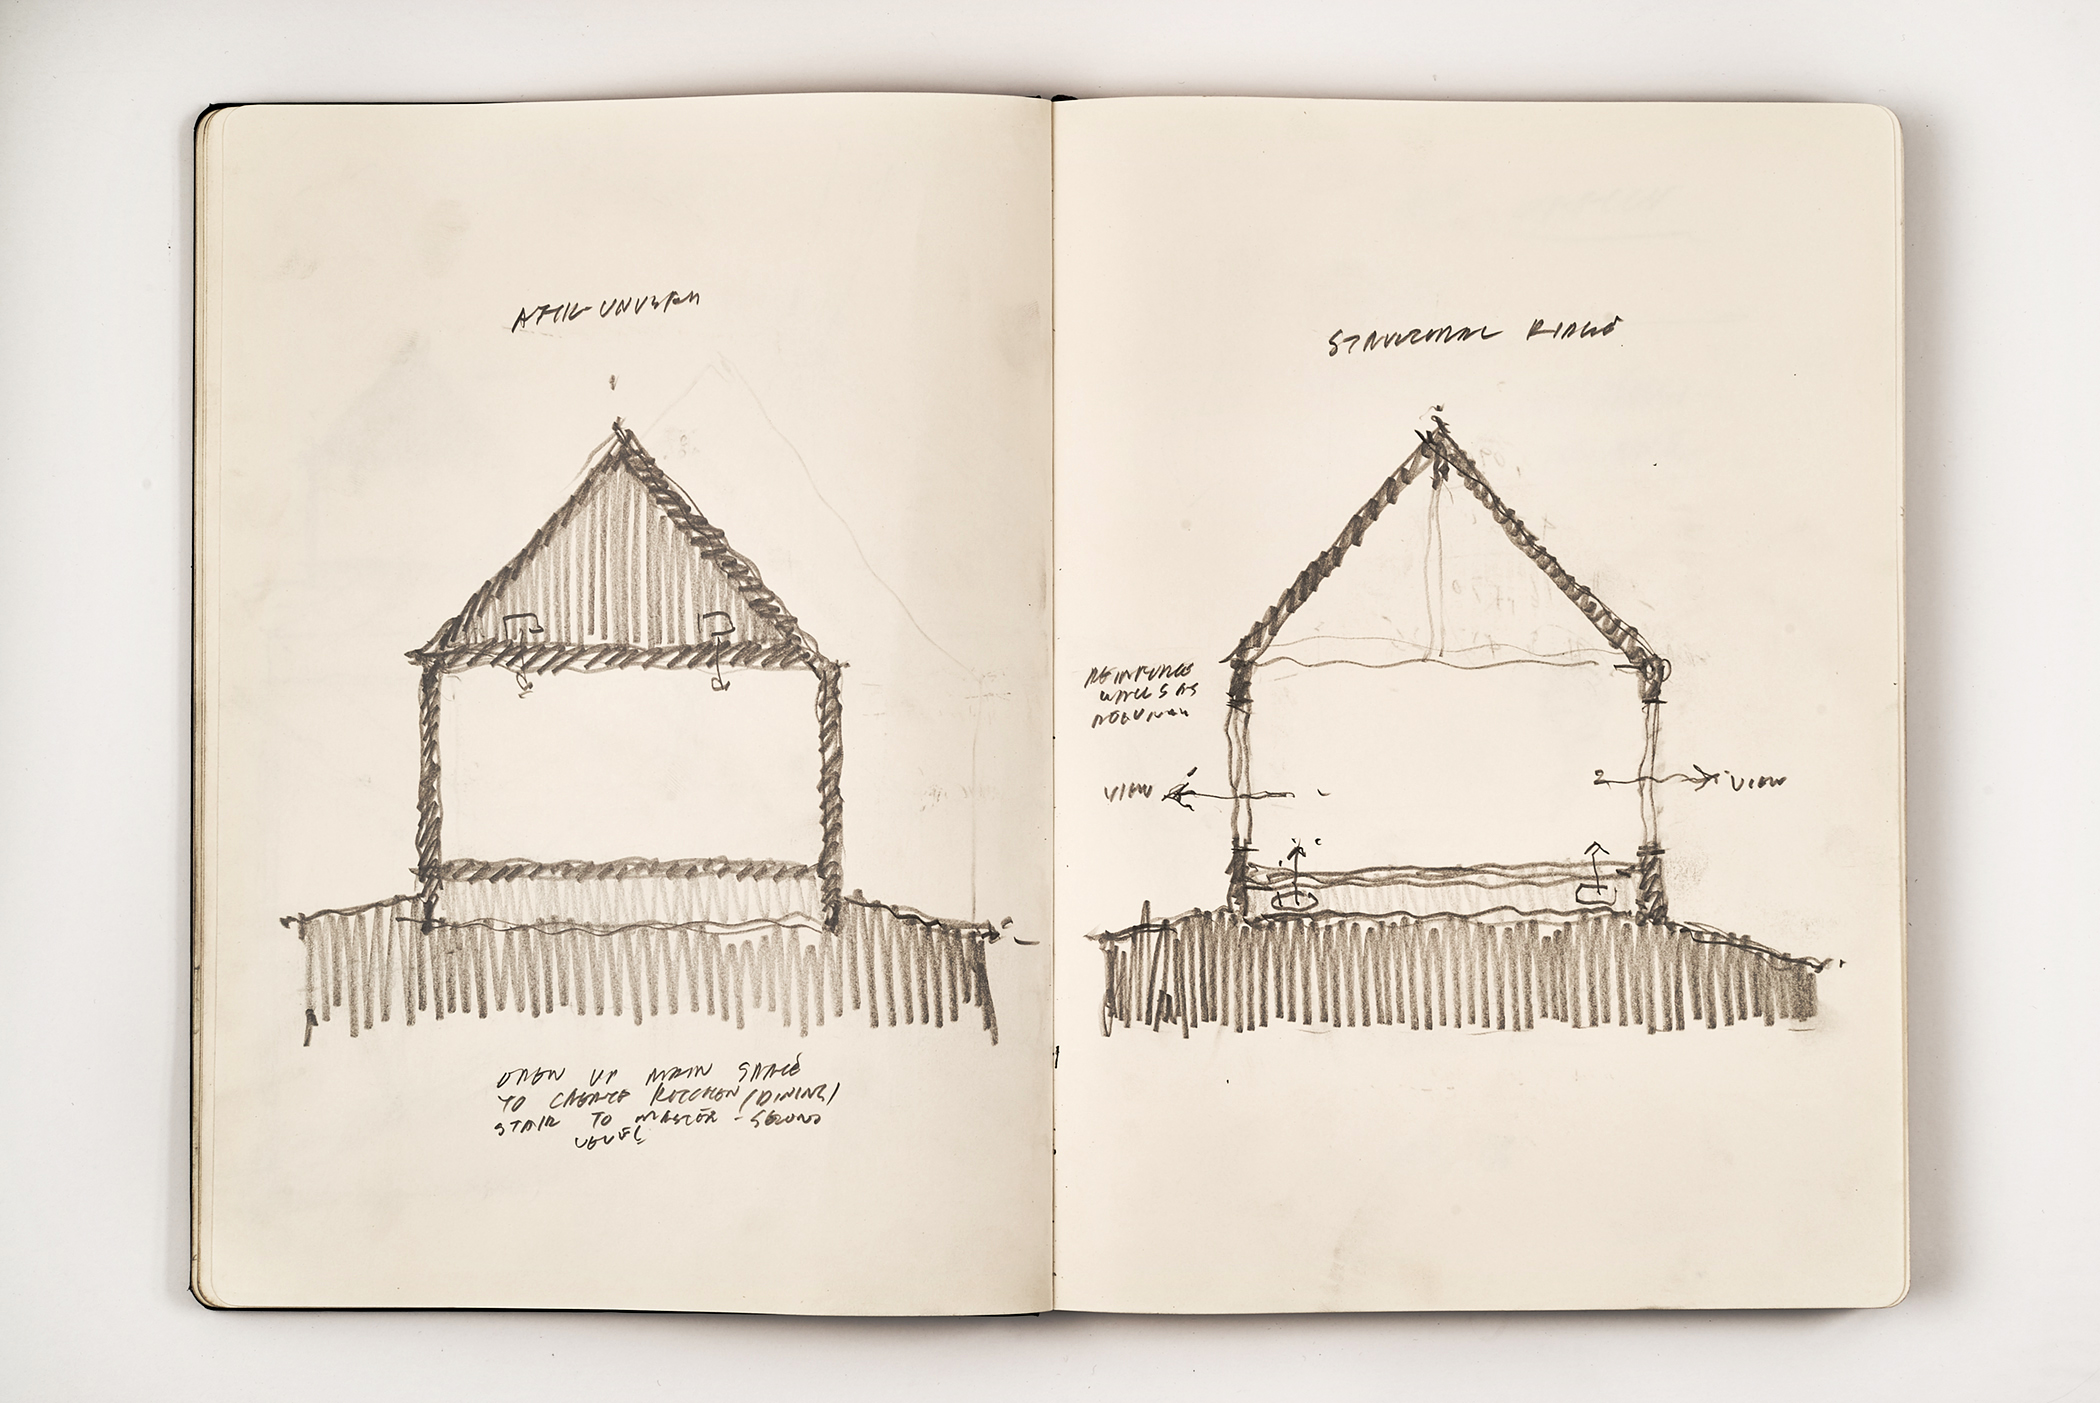 ATTIC-UNUSED
OPEN UP MAIN SPACE
TO CREATE KITCHEN/DINING/
STAIR TO MASTER - SECOND
LEVEL
STRUCTURAL RIDGE
REINFORCE
WALLS AS
REQUIRED
VIEW
VIEW